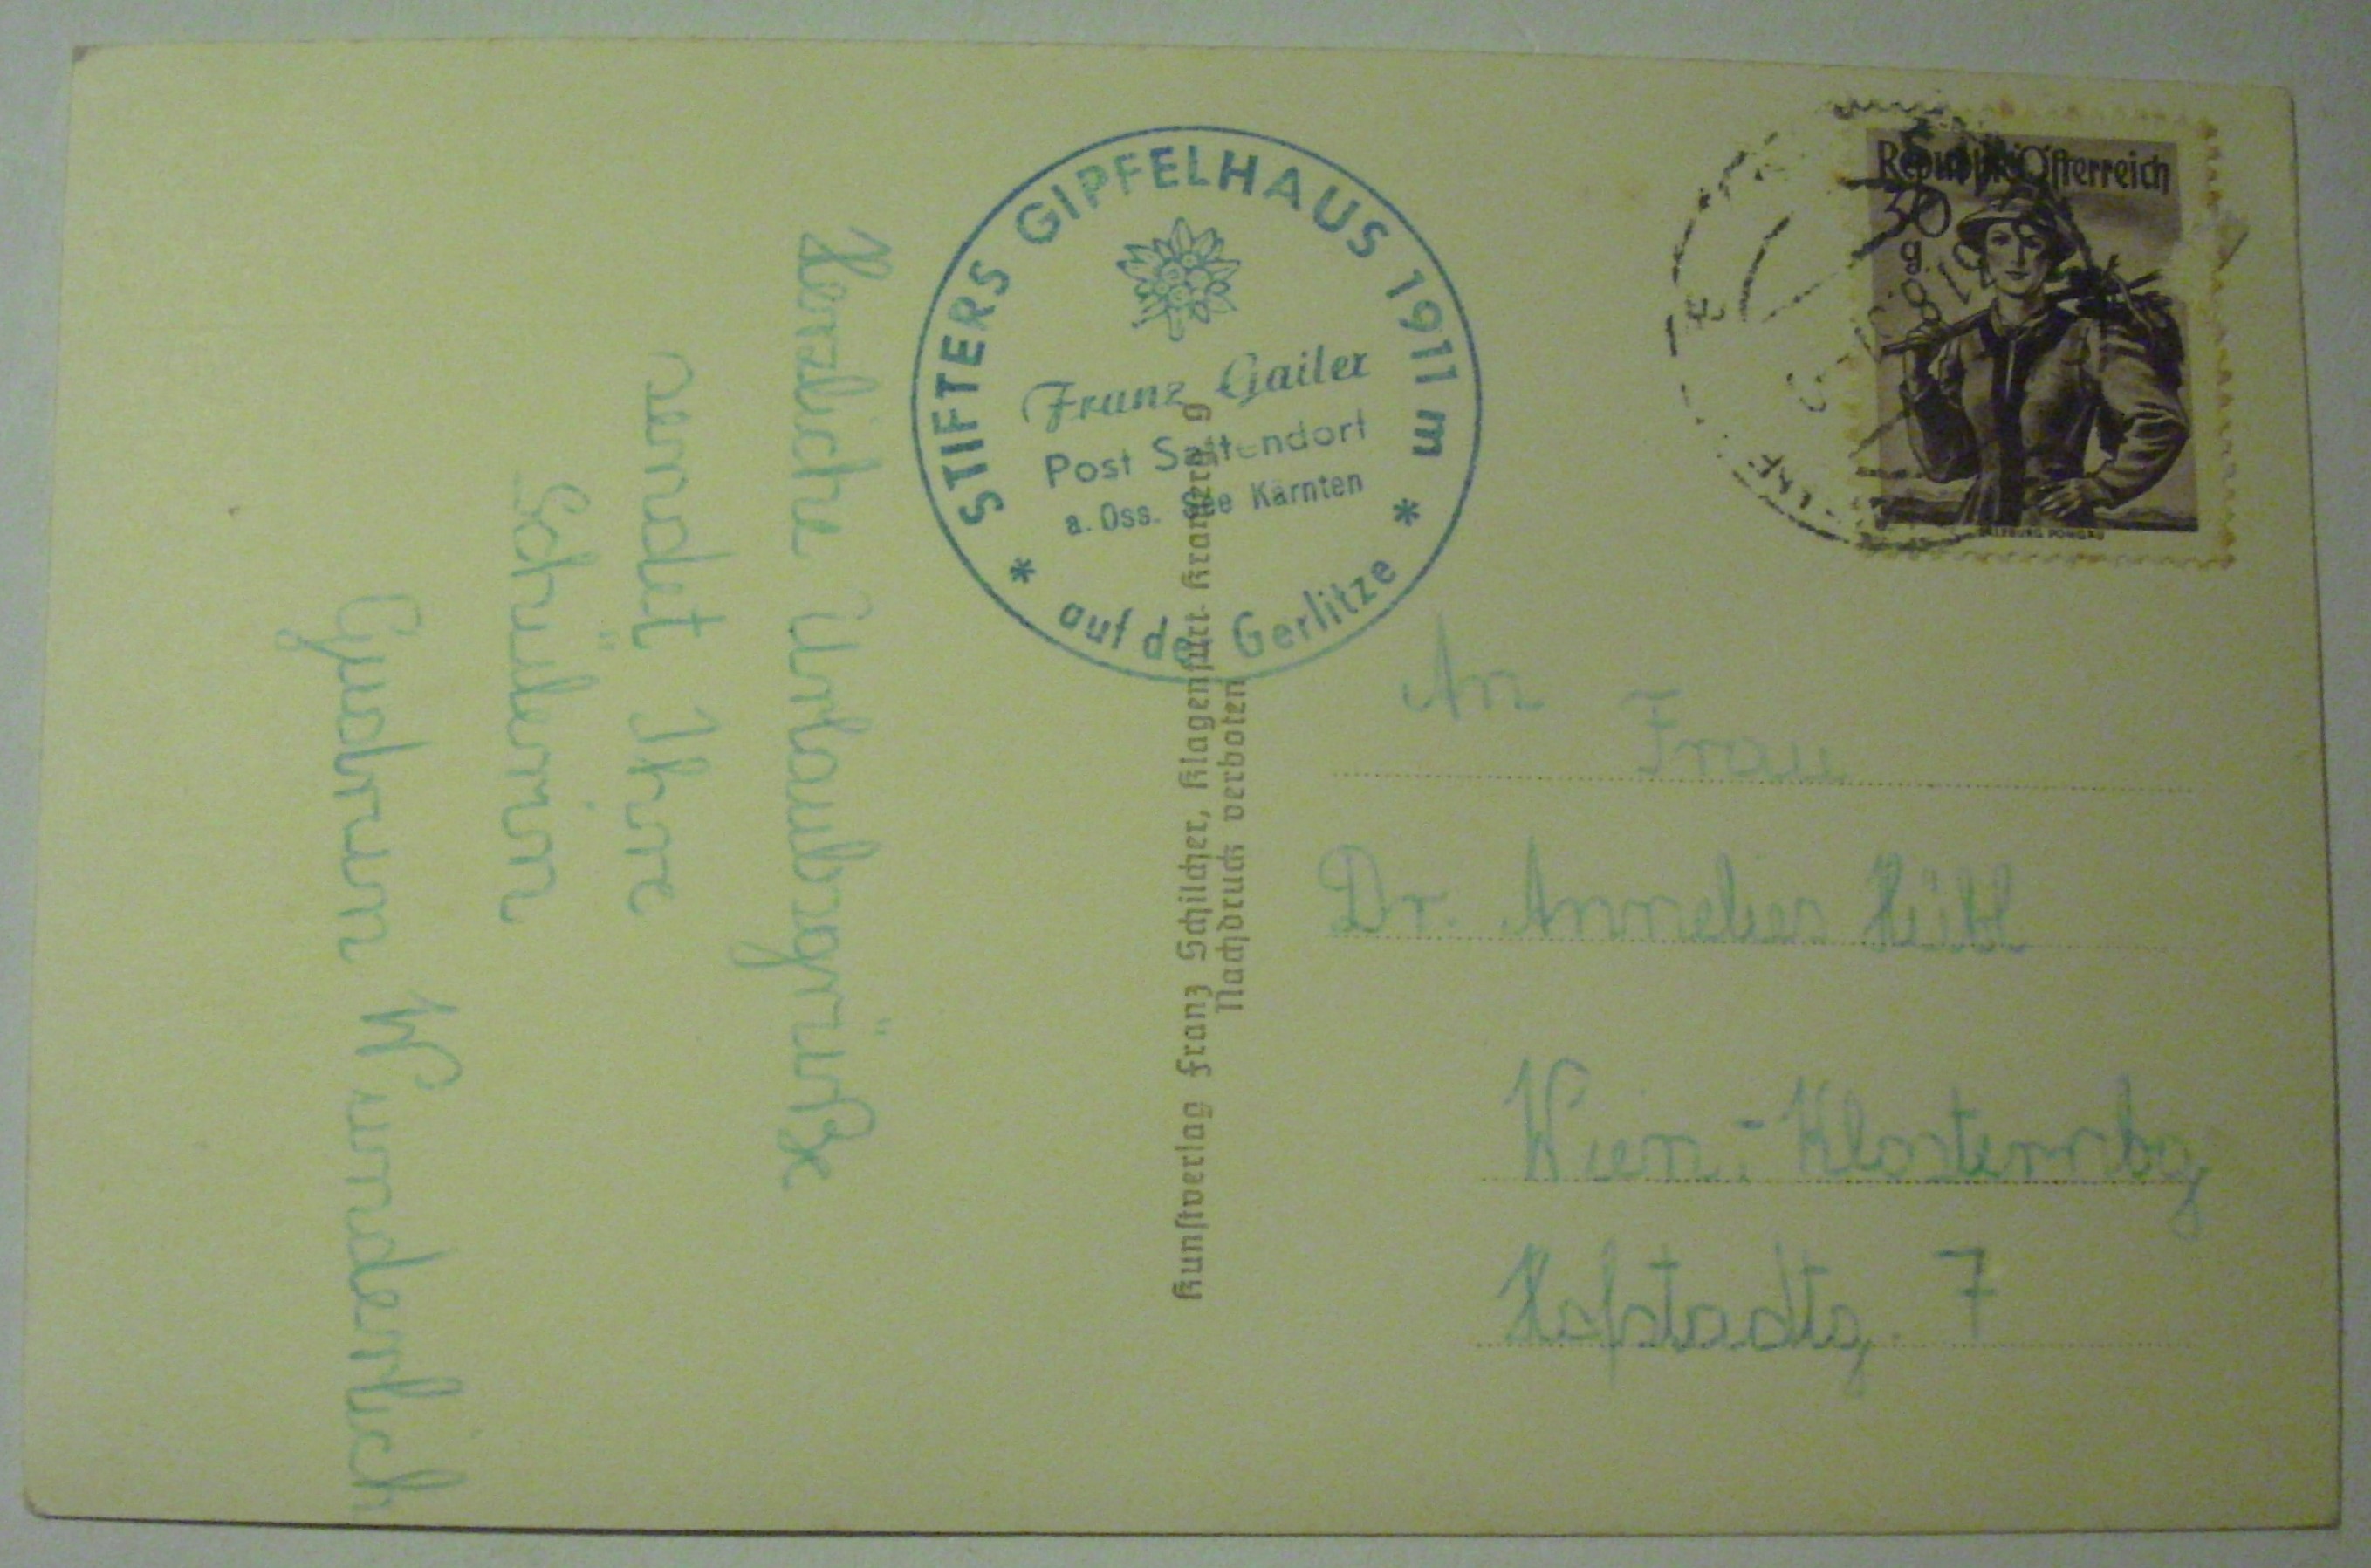 Herzliche Urlaubsgrüße
sendet Ihre
Schülerin
Gudrun Wunderlich
STIFTERS GIPFELHAUS 1911 m
Franz Gailer
Post Sattendorf
a. Oss. See Kärnten
* auf der Gerlitze *
Kunstverlag Franz Schilcher, Klagenfurt
Nachdruck verboten
Republik Österreich
30
g.
SALZBURG PONGAU
An
Frau
Dr. Annelies Hübl
Wien - Klosternbg
Hofstadtg. 7